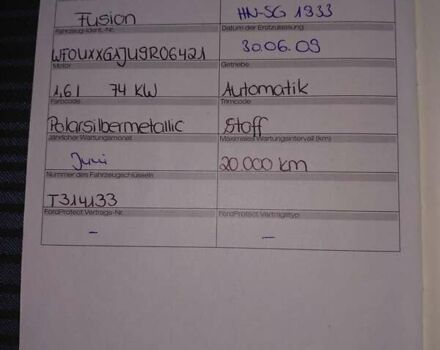 Fusion
HN-SG 1933
Fahrzeug-Ident.-Nr.
Datum der Erstzulassung
WF0UXXGAJU9R06421
30.06.09
Motor
Getriebe
1,6 l 74 KW
Automatik
Farbcode
Trimcode
Polarsilbermetallic
Stoff
Jährlicher Wartungsmonat
Maximales Wartungsintervall (km)
Juni
20.000 km
Nummer des Fahrzeugschlüssels
T314133
FordProtect Vertrags-Nr.
FordProtect Vertragstyp
–
–